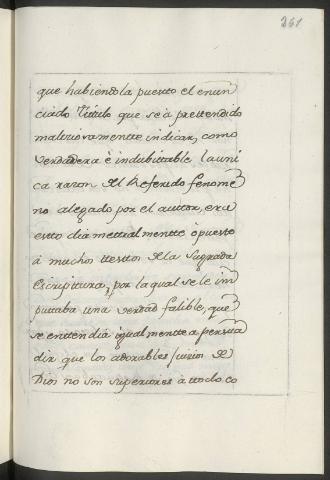 261
que habiendola puesto el enun
ciado Titulo que se à prettendido
maliziosamentte indicar, como
verdadera è indubittable la uni
ca razon del Referido fenome
no alegado por el auttor, era
estto diamettralmentte opuesto
à muchos testtos de la Sagrada
Escripttura, por la qual se le im
puttaba una verdad falible, que
se enttendia igualmentte a persua
dir que los adorables juizios de
Dios no son superiores à ttodo co